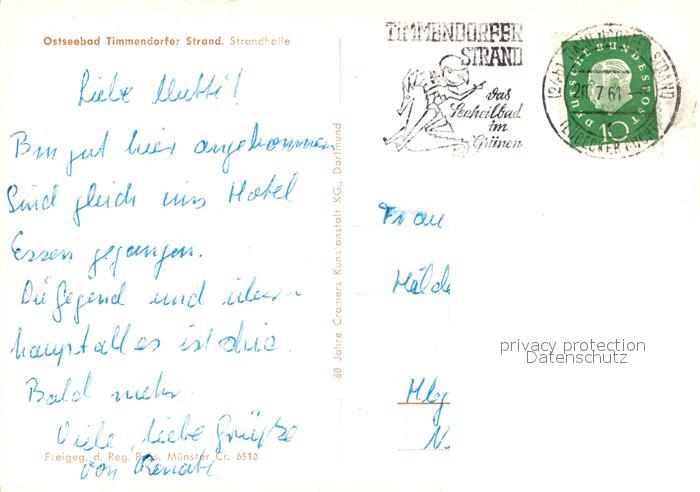 Ostseebad Timmendorfer Strand. Strandhalle
Liebe Mutti!
Bin gut hier angekommen
Sind gleich ins Hotel
Essen gegangen.
Die Gegend und über
haupt alles ist
Bald mehr.
Viele liebe Grüße
von Renate.
Freigeg. d. Reg. Präs. Münster Cr. 6510
60 Jahre Cramers Kunstanstalt KG., Dortmund
TIMMENDORFER
STRAND
das
Seeheilbad
im
Grünen
TIMMENDORFER STRAND
7.61
DEUTSCHE BUNDESPOST
10
Frau
Hilde
Hbg
N
privacy protection
Datenschutz